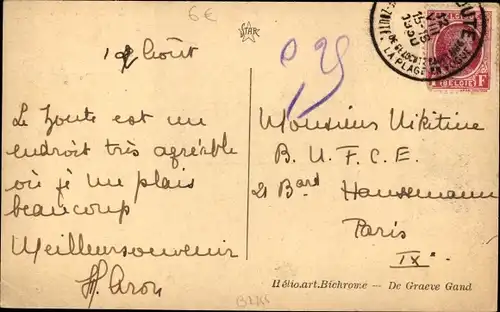 6€
STAR
Août
Le Zoute est un
endroit très agréable
où je me plais
beaucoup
Meilleur souvenir
H. Aron
ZOUTE
1930
LA PLAGE
BELGIE
1 F
Monsieur Nikitine
B. U. F. C. E.
21 Bard Haussmann
Paris
IXe
Hélio.art.Bichrome — De Graeve Gand